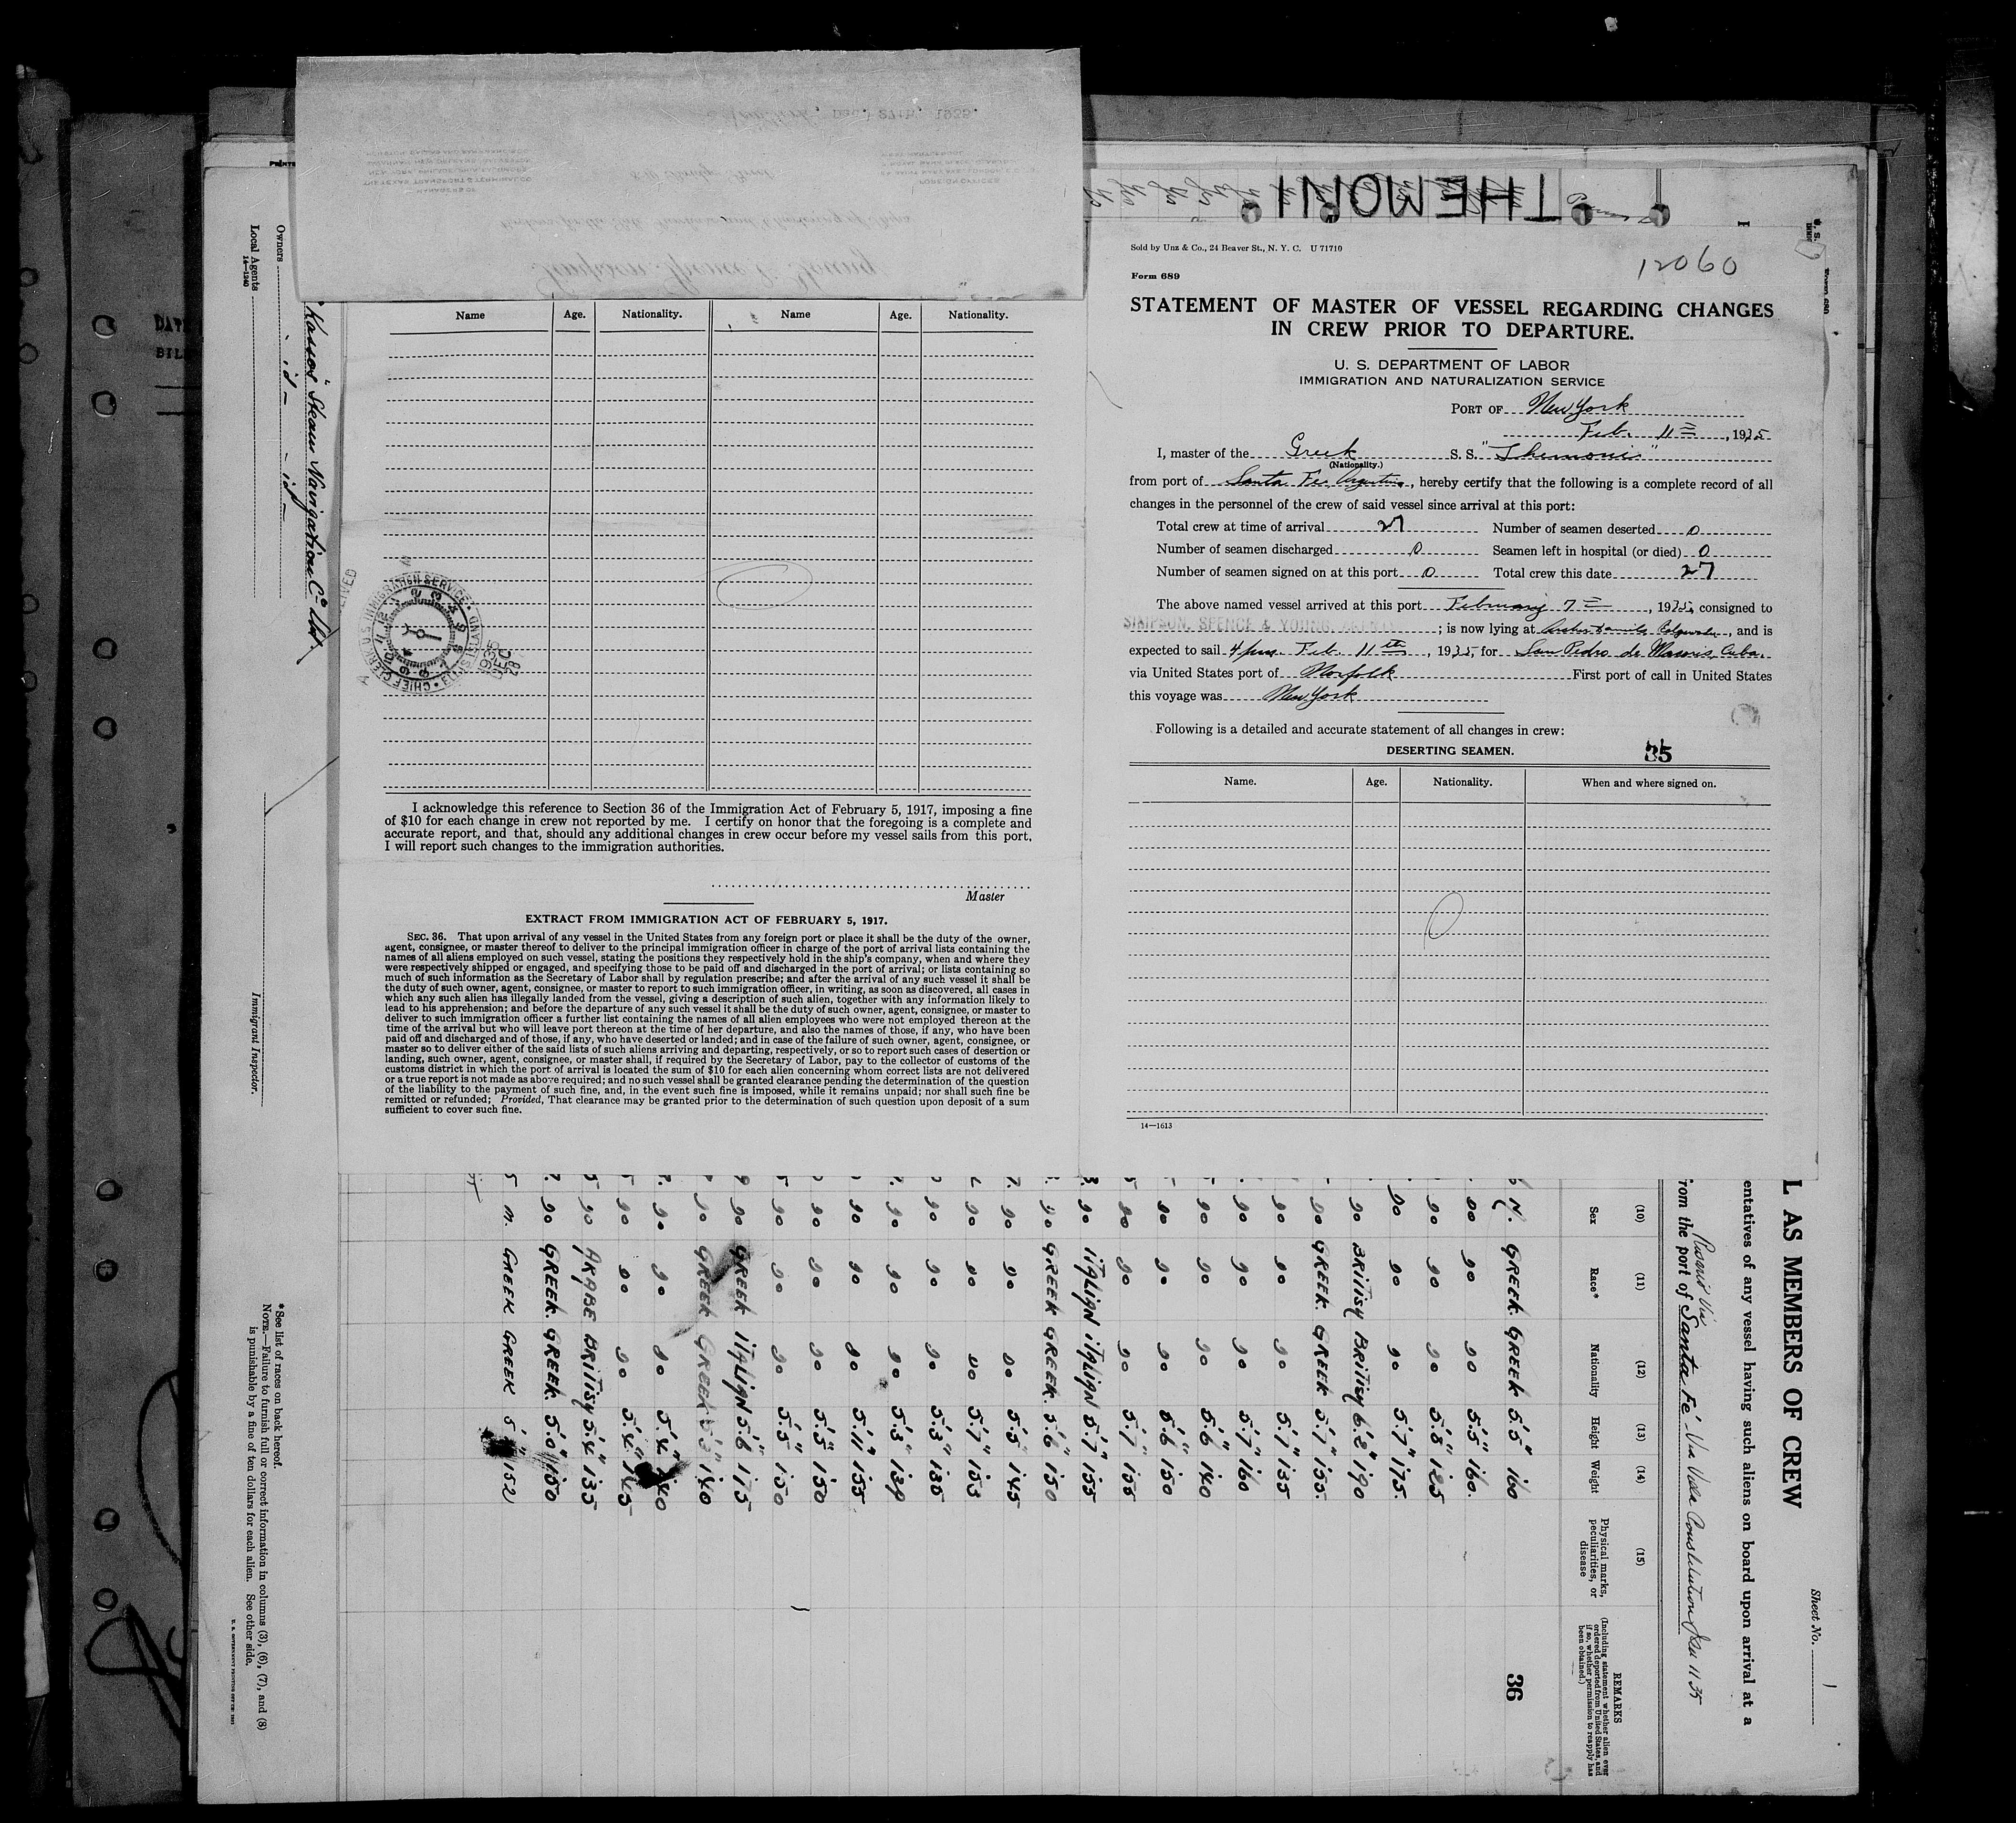 THEMONI
Sold by Unz & Co., 24 Beaver St., N. Y. C. U 71710
12060
Form 689
STATEMENT OF MASTER OF VESSEL REGARDING CHANGES
IN CREW PRIOR TO DEPARTURE.
U. S. DEPARTMENT OF LABOR
IMMIGRATION AND NATURALIZATION SERVICE
PORT OF New York
Feb. 11, 1935
I, master of the Greek S. S. "Themoni"
(Nationality.)
from port of Santa Fe Argentina, hereby certify that the following is a complete record of all
changes in the personnel of the crew of said vessel since arrival at this port:
Total crew at time of arrival 27 Number of seamen deserted 0
Number of seamen discharged 0 Seamen left in hospital (or died) 0
Number of seamen signed on at this port 0 Total crew this date 27
The above named vessel arrived at this port February 7, 1935, consigned to
SIMPSON, SPENCE & YOUNG, ; is now lying at , and is
expected to sail 4 pm. Feb. 11th, 1935, for San Pedro de Macoris, Cuba.
via United States port of Norfolk First port of call in United States
this voyage was New York
Following is a detailed and accurate statement of all changes in crew:
DESERTING SEAMEN.
35
Name. Age. Nationality. When and where signed on.
0
14—1613
Name Age. Nationality. Name Age. Nationality.
CHIEF CLERK, U.S. IMMIGRATION SERVICE ELLIS ISLAND
1935
DEC
28
I acknowledge this reference to Section 36 of the Immigration Act of February 5, 1917, imposing a fine
of $10 for each change in crew not reported by me. I certify on honor that the foregoing is a complete and
accurate report, and that, should any additional changes in crew occur before my vessel sails from this port,
I will report such changes to the immigration authorities.
Master
EXTRACT FROM IMMIGRATION ACT OF FEBRUARY 5, 1917.
SEC. 36. That upon arrival of any vessel in the United States from any foreign port or place it shall be the duty of the owner,
agent, consignee, or master thereof to deliver to the principal immigration officer in charge of the port of arrival lists containing the
names of all aliens employed on such vessel, stating the positions they respectively hold in the ship's company, when and where they
were respectively shipped or engaged, and specifying those to be paid off and discharged in the port of arrival; or lists containing so
much of such information as the Secretary of Labor shall by regulation prescribe; and after the arrival of any such vessel it shall be
the duty of such owner, agent, consignee, or master to report to such immigration officer, in writing, as soon as discovered, all cases in
which any such alien has illegally landed from the vessel, giving a description of such alien, together with any information likely to
lead to his apprehension; and before the departure of any such vessel it shall be the duty of such owner, agent, consignee, or master to
deliver to such immigration officer a further list containing the names of all alien employees who were not employed thereon at the
time of the arrival but who will leave port thereon at the time of her departure, and also the names of those, if any, who have been
paid off and discharged and of those, if any, who have deserted or landed; and in case of the failure of such owner, agent, consignee, or
master so to deliver either of the said lists of such aliens arriving and departing, respectively, or so to report such cases of desertion or
landing, such owner, agent, consignee, or master shall, if required by the Secretary of Labor, pay to the collector of customs of the
customs district in which the port of arrival is located the sum of $10 for each alien concerning whom correct lists are not delivered
or a true report is not made as above required; and no such vessel shall be granted clearance pending the determination of the question
of the liability to the payment of such fine, and, in the event such fine is imposed, while it remains unpaid; nor shall such fine be
remitted or refunded; Provided, That clearance may be granted prior to the determination of such question upon deposit of a sum
sufficient to cover such fine.
Sheet No. 1
L AS MEMBERS OF CREW
entatives of any vessel having such aliens on board upon arrival at a
rom the port of Santa Fé. Via Villa Constitution Jan 11 35
Rosario Via
(10) (11) (12) (13) (14) (15)
Sex Race* Nationality Height Weight Physical marks, peculiarities, or disease
REMARKS
(Including statement whether alien ever ordered deported from United States, and if so, whether permission to reapply has been obtained.)
36
GREEK GREEK 5'5" 160
do do do 5'5" 160.
do do do 5'8" 125
do do do 5'7" 175.
do BRITISH BRITISH 6'2" 190
do GREEK. GREEK 5'7" 155.
do do do 5'7" 135
do do do 5'7" 160
do do do 5'6" 140
do do do 5'6" 150
do do do 5'7" 155
do ITALIAN ITALIAN 5'7" 155
do GREEK GREEK. 5'6" 150
do do do 5'5" 145
do do do 5'7" 153
do do do 5'3" 135
do do do 5'3" 139
do do do 5'11" 155
do do do 5'5" 150
do do do 5'5" 150
do GREEK ITALIAN 5'6" 175
do GREEK GREEK 5'3" 140
do do do 5'4" 140
do do do 5'4" 145
do ARABE BRITISH 5'4" 135
do GREEK. GREEK. 5'0" 150
m. GREEK GREEK 5' 152
*See list of races on back hereof.
NOTE.—Failure to furnish full or correct information in columns (3), (6), (7), and (8)
is punishable by a fine of ten dollars for each alien. See other side.
Immigrant Inspector.
Kassos Steam Navigation Co Ltd.
Owners - id - - id -
Local Agents
14—1240
Simpson Spence & Young